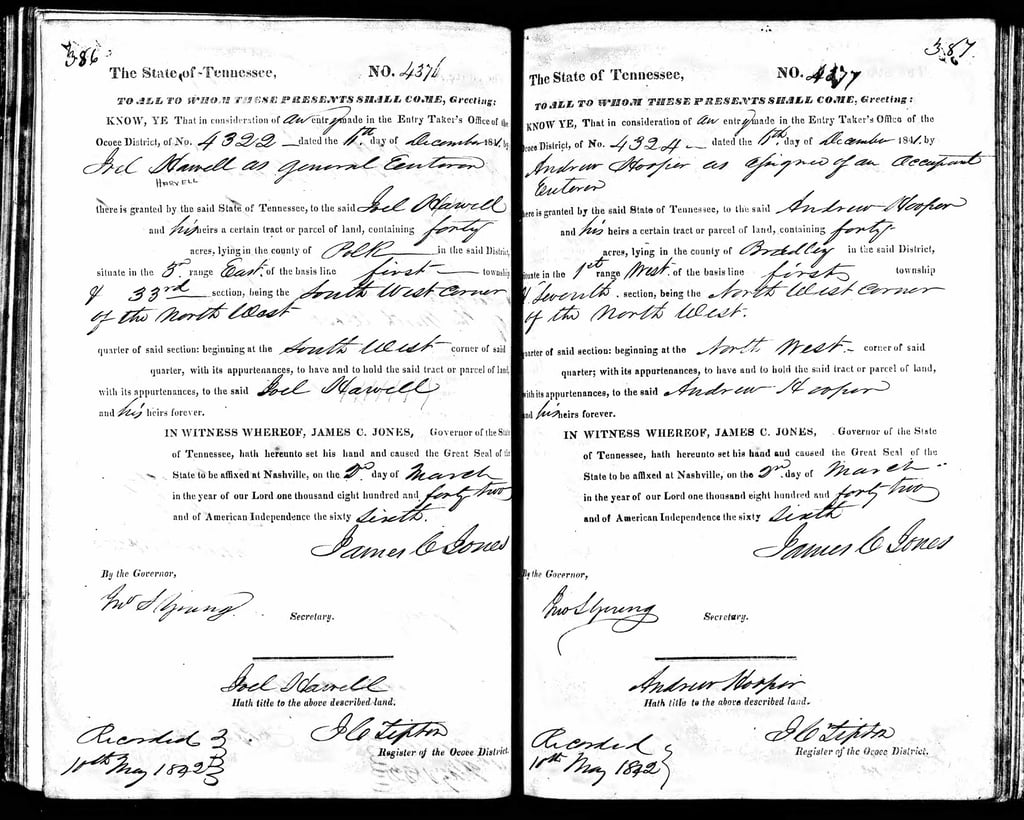 386
The State of Tennessee, NO. 4376
TO ALL TO WHOM THESE PRESENTS SHALL COME, Greeting:
KNOW, YE That in consideration of an entry made in the Entry Taker's Office of the
Ocoee District, of No. 4322 dated the 11th. day of December 1841. by
Joel Hawell as general Enteror
HARVELL
there is granted by the said State of Tennessee, to the said Joel Hawell
and his heirs a certain tract or parcel of land, containing forty
acres, lying in the county of Polk in the said District,
situate in the 3d range East. of the basis line first township
& 33rd section, being the South West corner
of the North West
quarter of said section: beginning at the South West corner of said
quarter, with its appurtenances, to have and to hold the said tract or parcel of land,
with its appurtenances, to the said Joel Hawell
and his heirs forever.
IN WITNESS WHEREOF, JAMES C. JONES, Governor of the State
of Tennessee, hath hereunto set his hand and caused the Great Seal of the
State to be affixed at Nashville, on the 2d day of March
in the year of our Lord one thousand eight hundred and forty two
and of American Independence the sixty sixth.
James C Jones
By the Governor,
Jno S Young
Secretary.
Joel Hawell
Hath title to the above described land.
J C Tipton
Register of the Ocoee District.
Recorded
10th May 1842
387
The State of Tennessee, NO. 4377
TO ALL TO WHOM THESE PRESENTS SHALL COME, Greeting:
KNOW YE, That in consideration of an entry made in the Entry Taker's Office of the
Ocoee District, of No. 4324 dated the 11th. day of December 1841. by
Andrew Hooper as assignee of an Occupant
Enteror
there is granted by the said State of Tennessee, to the said Andrew Hooper
and his heirs a certain tract or parcel of land, containing forty
acres, lying in the county of Bradley in the said District,
situate in the 1st range West. of the basis line first township
& Seventh section, being the North West corner
of the North West.
quarter of said section: beginning at the North West corner of said
quarter; with its appurtenances, to have and to hold the said tract or parcel of land,
with its appurtenances, to the said Andrew Hooper
and his heirs forever.
IN WITNESS WHEREOF, JAMES C. JONES, Governor of the State
of Tennessee, hath hereunto set his hand and caused the Great Seal of the
State to be affixed at Nashville, on the 2d day of March
in the year of our Lord one thousand eight hundred and forty two
and of American Independence the sixty sixth
James C Jones
By the Governor,
Jno S Young
Secretary.
Andrew Hooper
Hath title to the above described land.
J C Tipton
Register of the Ocoee District.
Recorded
10th May 1842